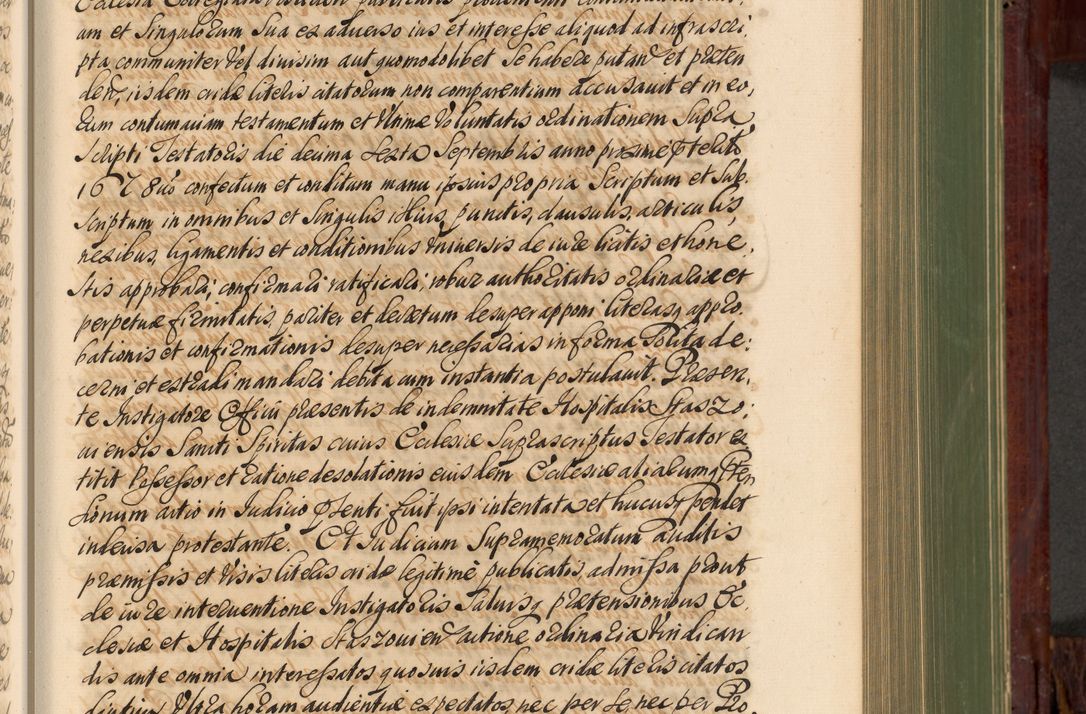 am et Singulorum Sua ex adverso ius et interesse aliquod ad infrascri,
pta communiter vel divisim aut quomodolibet se habere putan et præten
den, iisdem cridæ literis citatorum non comparentium accusavit et in eo,
rum contumaciam testamentum et Ultimæ Voluntatis ordinationem Supra
Scripti Testatoris die decima Sexta Septembris anno proxime pterito
1678 confectum et conditum manu ipsius propria Scriptum et Sub.
Scriptum in omnibus et Singulis illius, punctis, clausulis, articulis,
nexibus, ligamentis et conditionibus universis de iure licitis et hone,
stis approbari, confirmari ratificari, robur authoritatis ordinariæ et
perpetuæ firmitatis, pariter et decretum desuper apponi literasq appro.
bationis et confirmationis desuper necessarias in forma Solita de:
cerni et extradi mandari debita cum instantia postulavit. Præsen,
te Instigatore Officii præsentis de indemnitate Hospitalis Staszo,
viensis Sancti Spiritus cuius Ecclesiæ Suprascriptus Testator ex
titit Possessor et ratione desolationis eiusdem Ecclesiæ aliarumq Præten
sionum actio in Iudicio psenti fuit ipsi intentata et hucusq pendet
indecisa protestante. Et Iudicium Supramemoratum Auditis
præmissis et visis literis cridæ legitimè publicatis, admissa prout
de iure interventione Instigatoris Salvisq prætensionibus Ec,
clesiæ et Hospitalis Staszovien actione ordinaria Vindican
dis ante omnia interessatos quosvis iisdem cridæ literis citatos
diutius Ultra horam audientiæ expectatos, nec per se nec per Pro